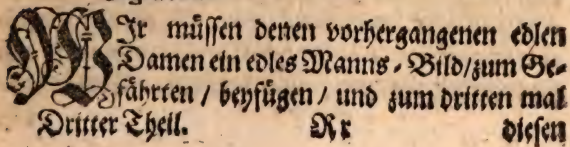 WIr müssen denen vorhergangenen edlen
Damen ein edles Manns-Bild/zum Ge-
fährten / beyfügen / und zum dritten mal
Dritter Theil. Rr diesen